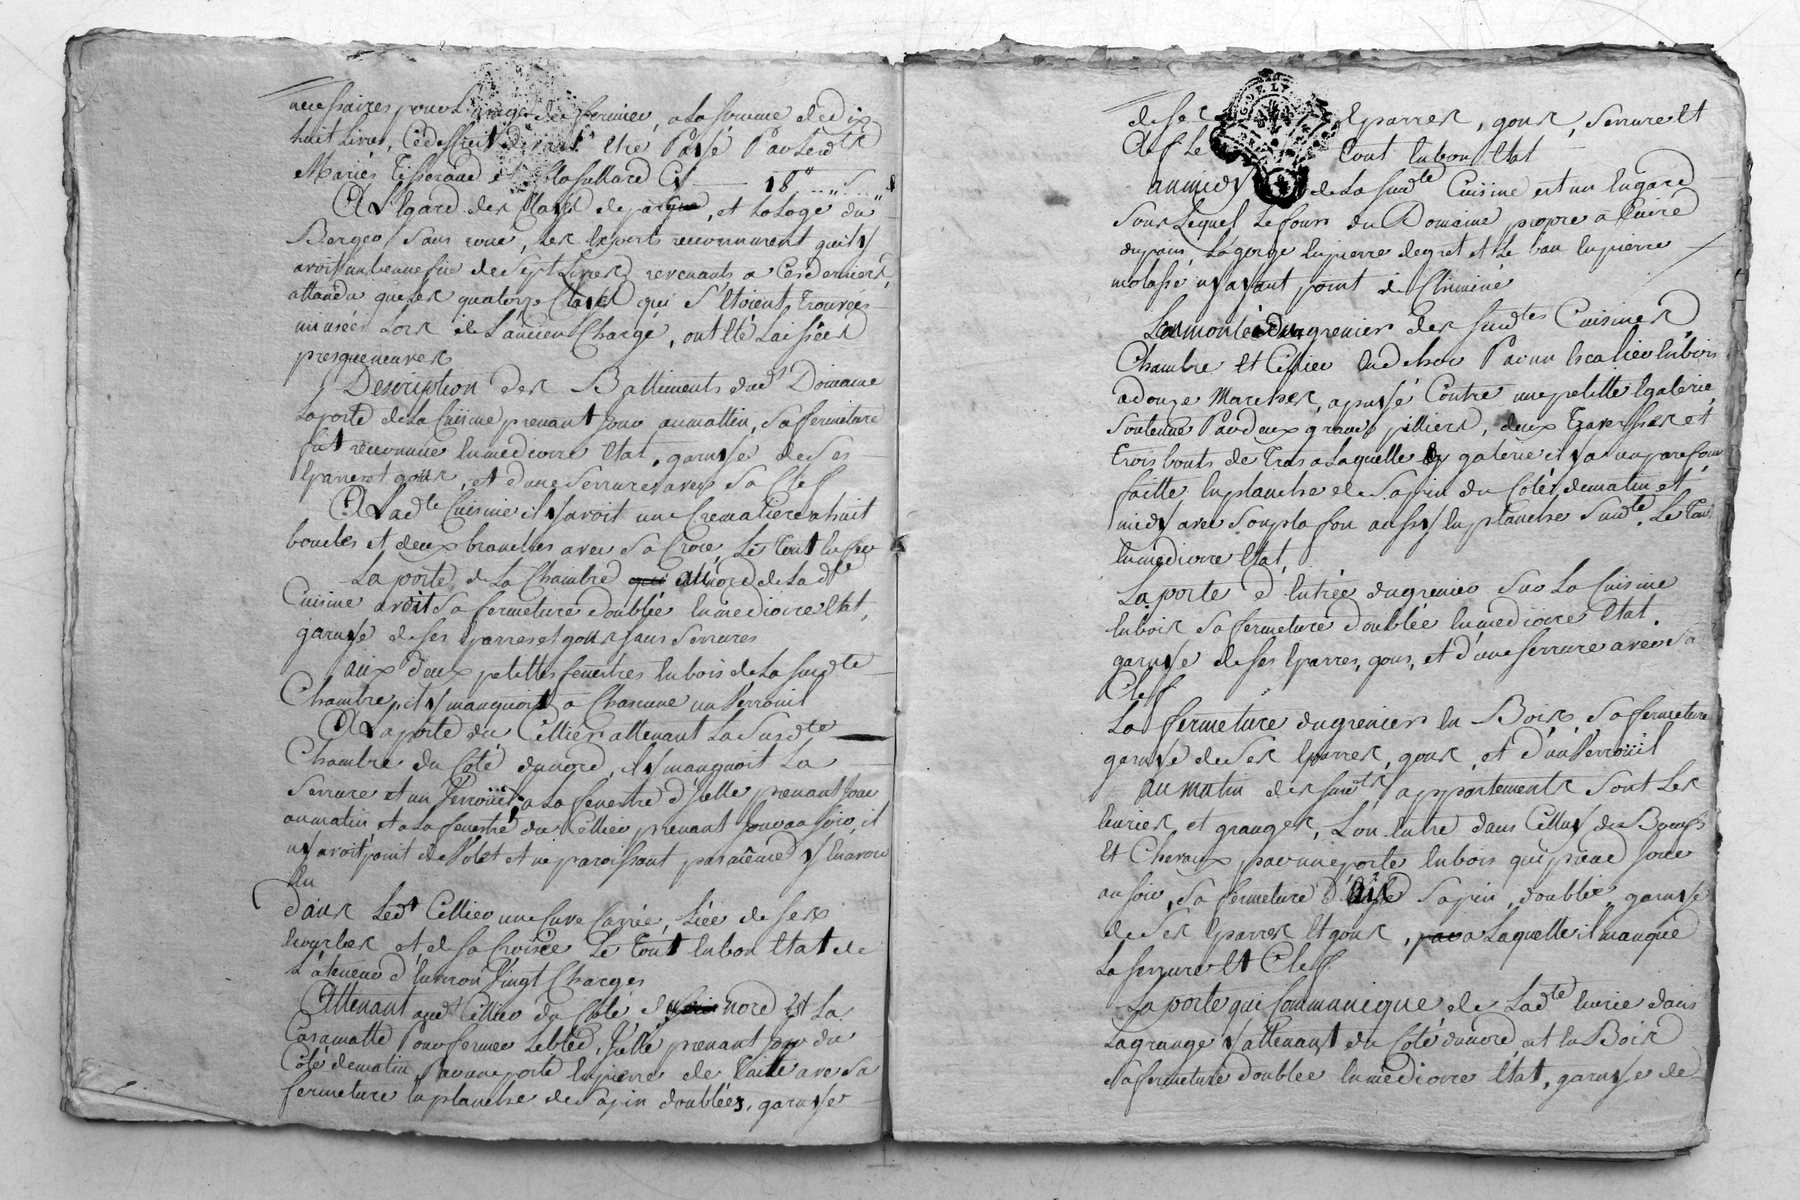 necessaires pour L'usage du fermier, a La somme de dix
huit Livres, Cedessert devant Etre Payé Par Lesdts
Mariés Tisserand et Cy 18" " S "
A L'Egard des Clayes de parque, et La Loge du
Berger sans roue, Les Experts reconnurent quil y
avoit un benneffice de Sept Livres revenants a Ces derniers,
attandu que Les quatorze Clayes qui S'Etoient Trouvées
mi usées Lors de L'ancien Chargé, ont Eté Laissées
presque neuves
Description des Battiments dud. Domaine
La porte de La Cuisine prenant Jour au mattin, Sa fermeture
fut reconnue En mediocre Etat, garnye de Ses
Eparres et gons, et d'une Serrure avec Sa Clef
A Ladte Cuisine il y avoit une Cremaliere a huit
boucles et deux branches avec Sa Croix, Le Tout En fer
La porte de La Chambre au nord de Ladte
Cuisine avoit Sa fermeture doublée En mediocre Etat,
garnye de Ses Eparres et gons Sans Serrures
aux deux petittes fenetres En bois de La Susdte
Chambre, il y manquoit a Chacune un Verrouil
A La porte du Cellier attenant La Susdte
Chambre du Coté du nord, il y manquoit La
Serrure et un Verrouil, a La fenetre d'Jcelle prenant Jour
au matin, et a La fenetre du Cellier prenant Jour au Soir, il
n'y avoit point de Volet et ne paroissant pas même d'y En avoir
Eu
dans Ledt Cellier une Cuve Carrée, Liée de Ses
Enparles et de Sa Croisée Le Tout En bon Etat de
L'ateneue d'Environ Vingt Charges
Attenant aud. Cellier du Coté du nord Est La
Casamatte Pour fermer Le bled, Jcelle prenant Jour du
Coté de matin, Par une porte En pierre de Taille avec Sa
fermeture En planche de Sapin doublées, garnye
de Ses Eparres, gons, Serrure Et
Clef Le tout En bon Etat
au midy de La Susdte Cuisine est un Engard
Sous Lequel Le four du Domaine propre a Cuire
du pain, La gorge En pierre de gret et Le bau En pierre
molasse n'ayant point de Cheminé
La montée du grenier des Susdtes Cuisines,
Chambre Et Cellier du dehor Par un Escalier En bois
a douze Marches, apuyé Contre une petitte Egalerie,
Soutenue Par deux grands pilliers, deux Traversses et
Trois bouts de Tras a Laquelle galerie il y a un parefour
faitte En planche de Sapin du Coté de matin et
midy avec Son plafon aussy En planche Susdte. Le Tout
En mediocre Etat,
La porte d'Entrée du grenier Sur La Cuisine
En bois Sa fermeture doublée En mediocre Etat
garnye de Ses Eparres, gons, et d'une Serrure avec Sa
Clef
La fermeture du grenier En Bois, Sa fermeture
garnye de Ses Eparres, gons, et d'un Verrouil
au matin des Susdts appartements Sont Les
Ecuries et granges, L'on Entre dans Celluy des Boeufs
Et Chevaux par une porte En bois qui prend Jour
au Soir, Sa fermeture d'aix Sapin, doublée, garnye
de Ses Eparres Et gons, a Laquelle il manque
La Serrure Et Clef
La porte qui Communique de Ladte Ecurie dans
La grange y attenant du Coté du nord est En Bois
Sa fermeture doublée En mediocre Etat, garnye de